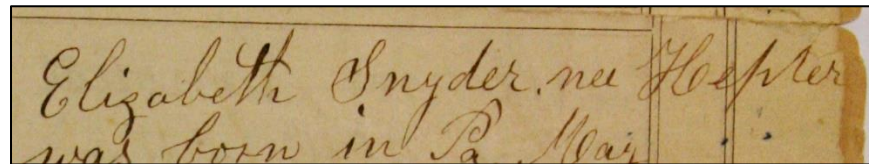 Elizabeth Snyder, nee Hepler
was born in Pa. May